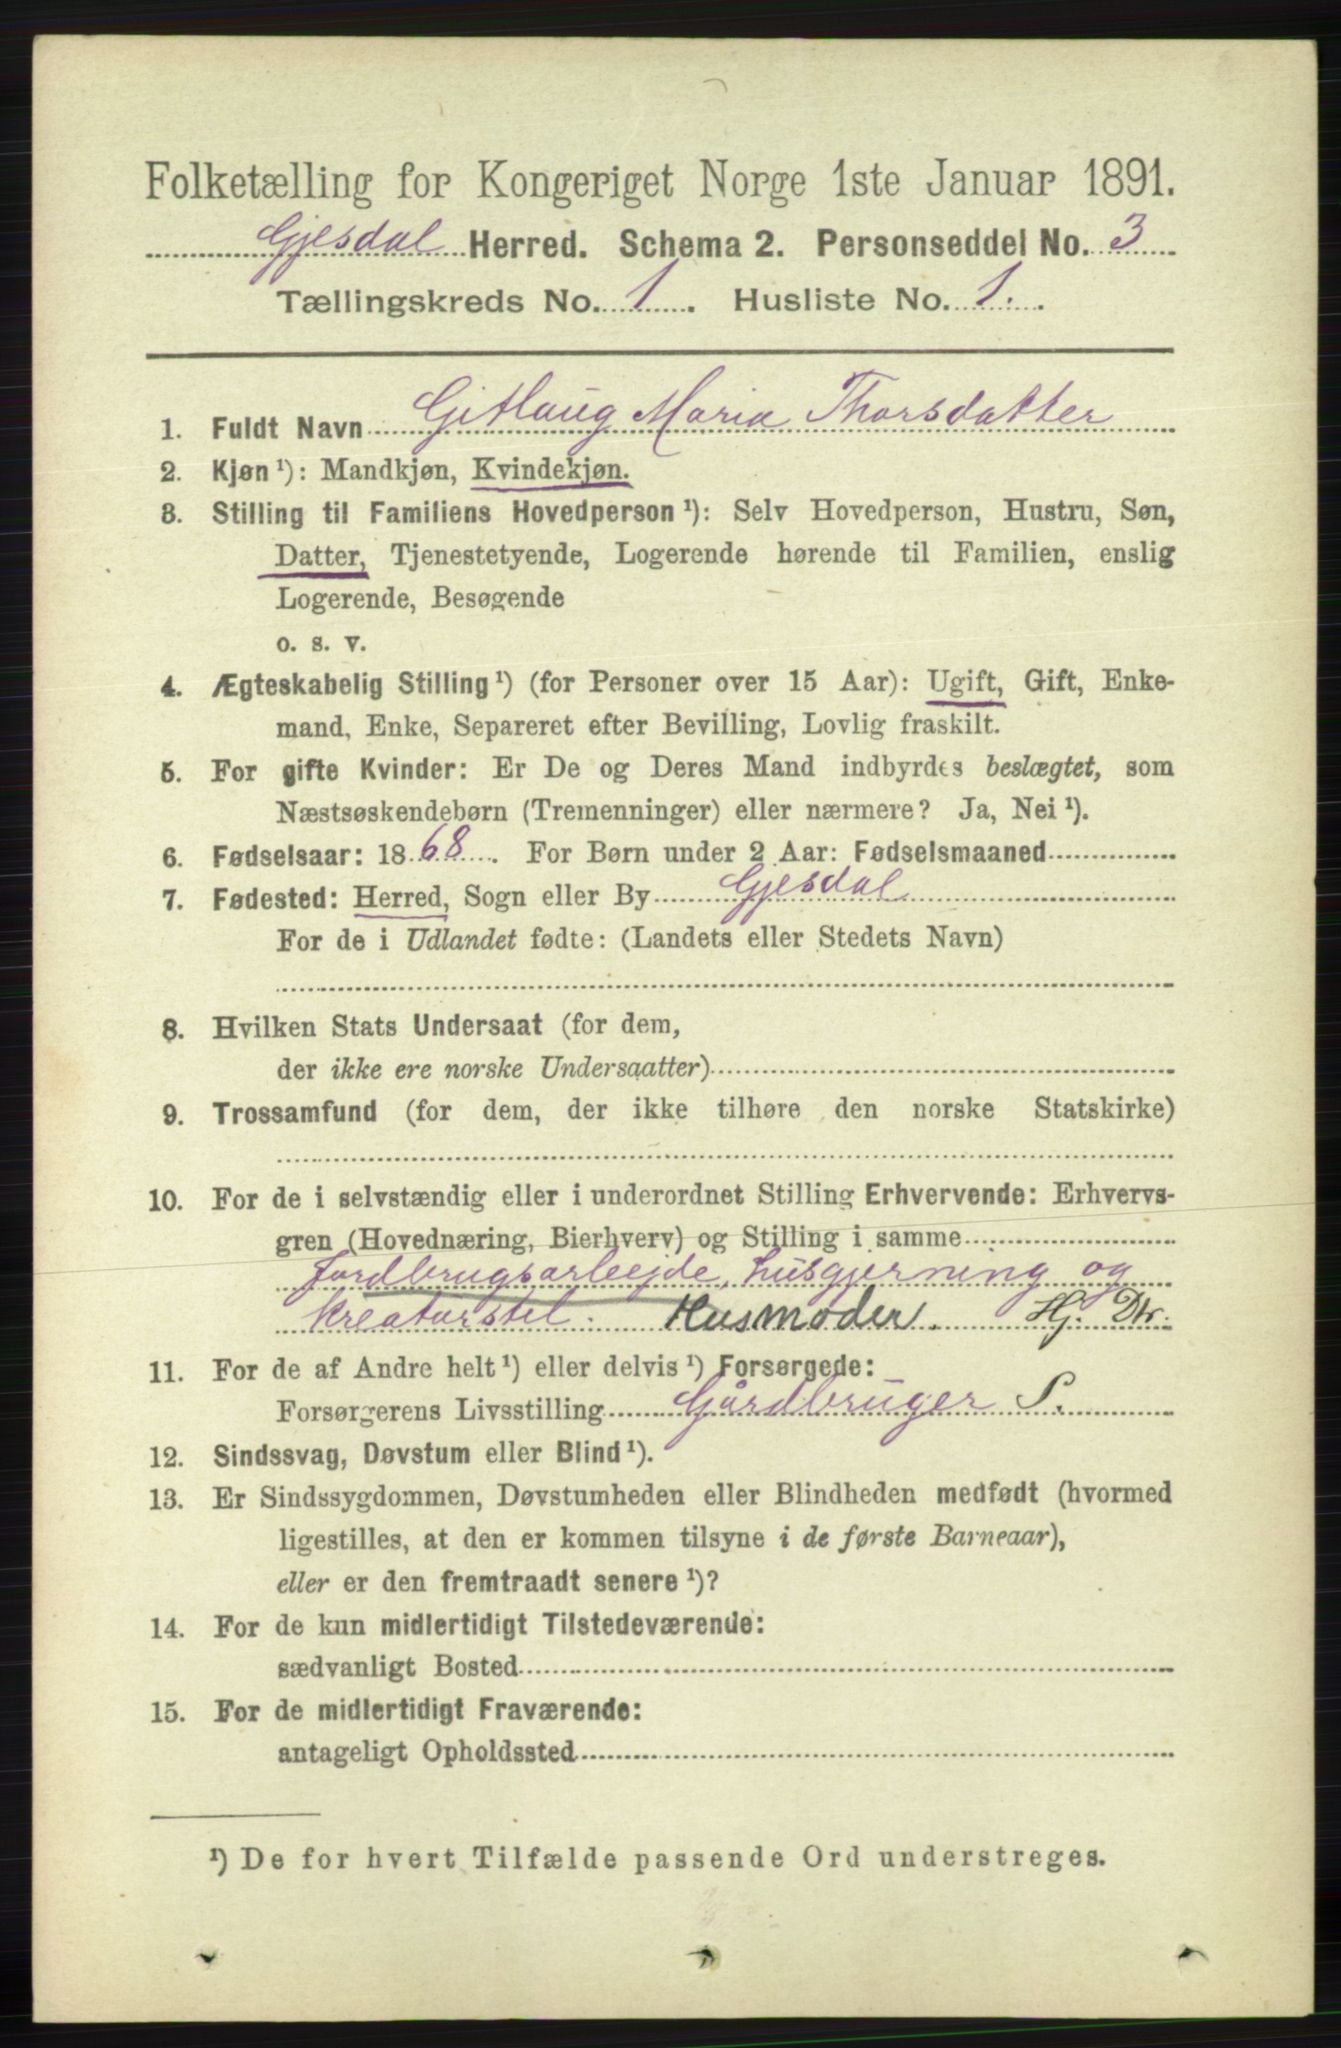 Folketælling for Kongeriget Norge 1ste Januar 1891.
Gjesdal Herred. Schema 2. Personseddel No. 3
Tællingskreds No. 1. Husliste No. 1.
1. Fuldt Navn Gitlaug Maria Thorsdatter
2. Kjøn ¹): Mandkjøn, Kvindekjøn.
3. Stilling til Familiens Hovedperson ¹): Selv Hovedperson, Hustru, Søn,
Datter, Tjenestetyende, Logerende hørende til Familien, enslig
Logerende, Besøgende
o. s. v.
4. Ægteskabelig Stilling ¹) (for Personer over 15 Aar): Ugift, Gift, Enke-
mand, Enke, Separeret efter Bevilling, Lovlig fraskilt.
5. For gifte Kvinder: Er De og Deres Mand indbyrdes beslægtet, som
Næstsøskendebørn (Tremenninger) eller nærmere? Ja, Nei ¹).
6. Fødselsaar: 1868. For Børn under 2 Aar: Fødselsmaaned
7. Fødested: Herred, Sogn eller By Gjesdal
For de i Udlandet fødte: (Landets eller Stedets Navn)
8. Hvilken Stats Undersaat (for dem,
der ikke ere norske Undersaatter)
9. Trossamfund (for dem, der ikke tilhøre den norske Statskirke)
10. For de i selvstændig eller i underordnet Stilling Erhvervende: Erhvervs-
gren (Hovednæring, Bierhverv) og Stilling i samme
Jordbrugsarbejde, husgjerning og
Kreaturstel. Husmoder. Hj. Dtr.
11. For de af Andre helt ¹) eller delvis ¹) Forsørgede:
Forsørgerens Livsstilling Gårdbruger S.
12. Sindssvag, Døvstum eller Blind ¹).
13. Er Sindssygdommen, Døvstumheden eller Blindheden medfødt (hvormed
ligestilles, at den er kommen tilsyne i de første Barneaar),
eller er den fremtraadt senere ¹)?
14. For de kun midlertidigt Tilstedeværende:
sædvanligt Bosted
15. For de midlertidigt Fraværende:
antageligt Opholdssted
¹) De for hvert Tilfælde passende Ord understreges.